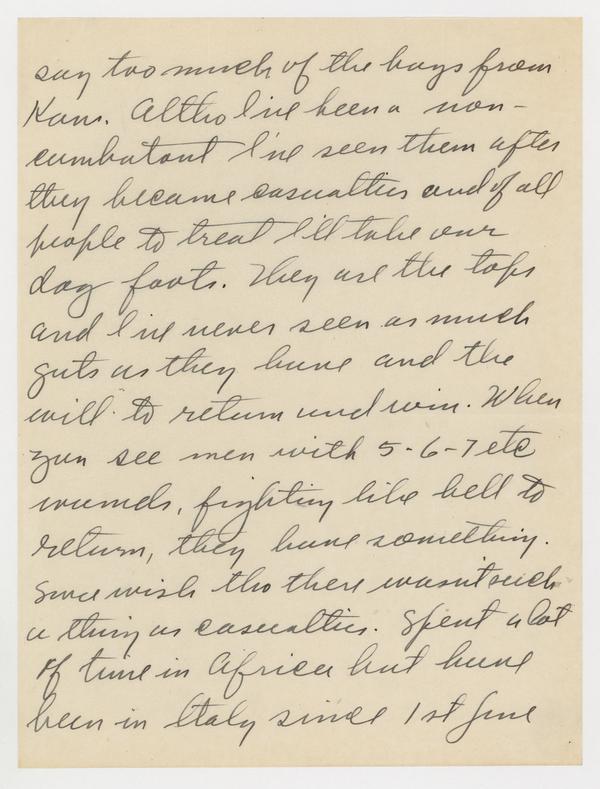 say too much of the boys from
Kans. Altho I've been a non-
combatant I've seen them after
they became casualties and of all
people to treat I'll take our
dog foots. They are the tops
and I've never seen as much
guts as they have and the
will to return and win. When
you see men with 5-6-7 etc
wounds, fighting like hell to
return, they have something.
Sure wish tho there wasn't such
a thing as casualties. Spent a lot
of time in Africa but have
been in Italy since 1st June